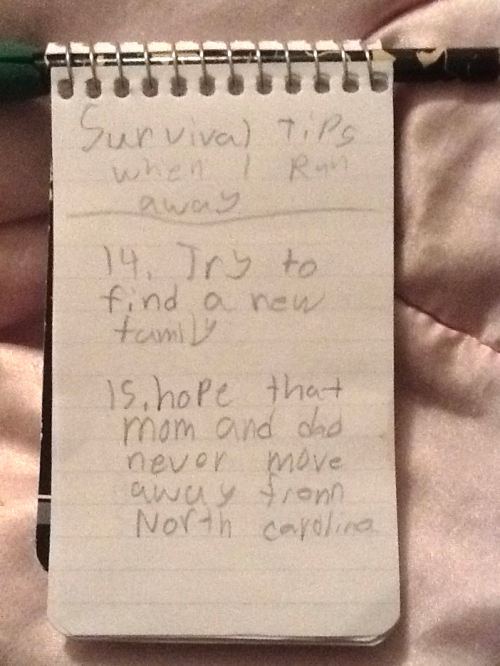 Survival Tips
when I Run
away
14. Try to
find a new
family
15. hope that
mom and dad
never move
away from
North carolina